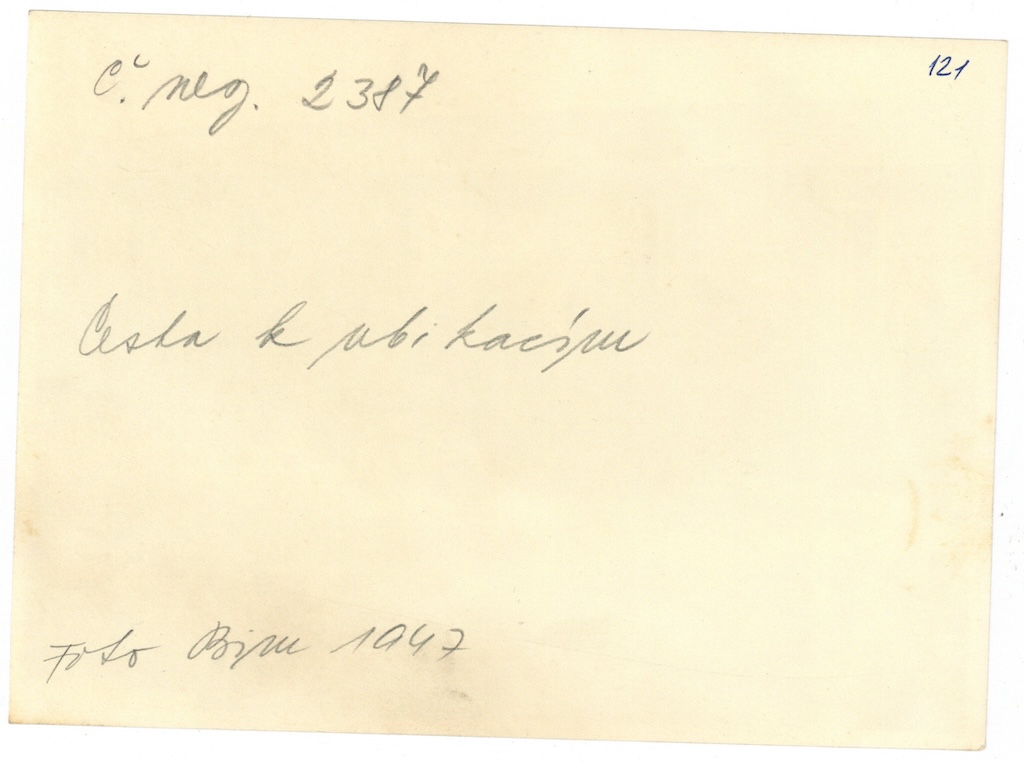 121
Č. neg. 2387
Cesta k ubikacím
Foto Bím 1947